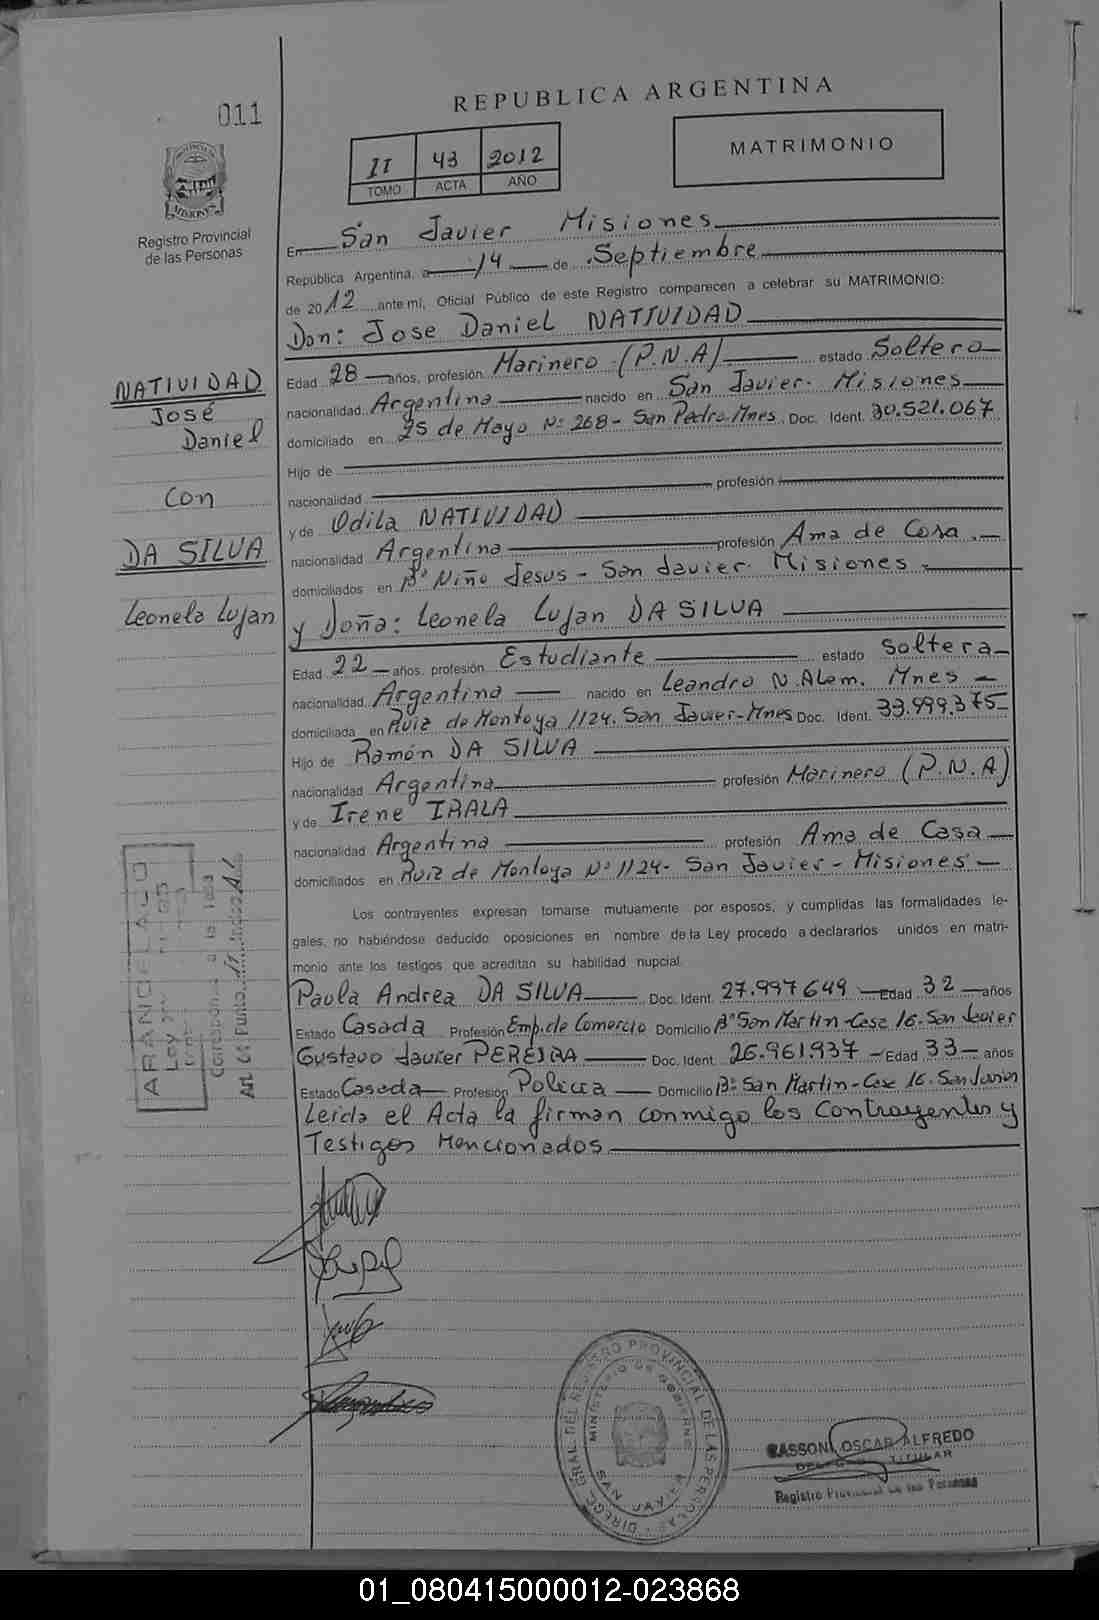 REPUBLICA ARGENTINA
011
II 43 2012
TOMO ACTA AÑO
MATRIMONIO
PROVINCIA
MISIONES
Registro Provincial
de las Personas
En San Javier Misiones
República Argentina, a 14 de Septiembre
de 2012 ante mí, Oficial Público de este Registro comparecen a celebrar su MATRIMONIO:
Don: Jose Daniel NATIVIDAD
Edad 28 años, profesión Marinero (P.N.A) estado Soltero
nacionalidad Argentina nacido en San Javier - Misiones
domiciliado en 25 de Mayo Nº 268 - San Pedro Mnes. Doc. Ident. 30.521.067
Hijo de
nacionalidad profesión
y de Odila NATIVIDAD
nacionalidad Argentina profesión Ama de Casa.
domiciliados en Bº Niño Jesus - San Javier - Misiones
y Doña: Leonela Lujan DA SILVA
Edad 22 años, profesión Estudiante estado Soltera
nacionalidad Argentina nacido en Leandro N. Alem. Mnes
domiciliada en Ruiz de Montoya 1124. San Javier-Mnes Doc. Ident. 33.999.375
Hijo de Ramón DA SILVA
nacionalidad Argentina profesión Marinero (P.N.A)
y de Irene IRALA
nacionalidad Argentina profesión Ama de Casa
domiciliados en Ruiz de Montoya Nº 1124 - San Javier - Misiones
Los contrayentes expresan tomarse mutuamente por esposos, y cumplidas las formalidades le-
gales, no habiéndose deducido oposiciones en nombre de la Ley procedo a declararlos unidos en matri-
monio ante los testigos que acreditan su habilidad nupcial.
Paula Andrea DA SILVA Doc. Ident. 27.997649 Edad 32 años
Estado Casada Profesión Emp. de Comercio Domicilio Bº San Martin - Casa 16 - San Javier
Gustavo Javier PEREIRA Doc. Ident. 26.961.937 Edad 33 años
Estado Casado Profesión Policia Domicilio Bº San Martin - Casa 16 - San Javier
Leida el Acta la firman conmigo los Contrayentes y
Testigos Mencionados
NATIVIDAD
José
Daniel
con
DA SILVA
Leonela Lujan
ARANCELADO
Ley
Corresponde a la Tasa
Art. 61 Punto 11 Inciso
DIREC. GRAL. DEL REGISTRO PROVINCIAL DE LAS PERSONAS
MINISTERIO DE GOBIERNO
SAN JAVIER
OSCAR ALFREDO
TITULAR
Registro Provincial de las Personas
01_080415000012-023868